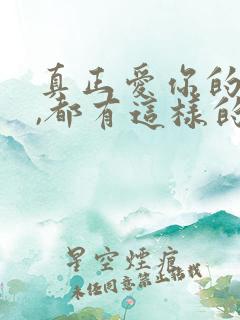 真正愛你的
,都有這樣的
星空煙痕
未任同意第止結找